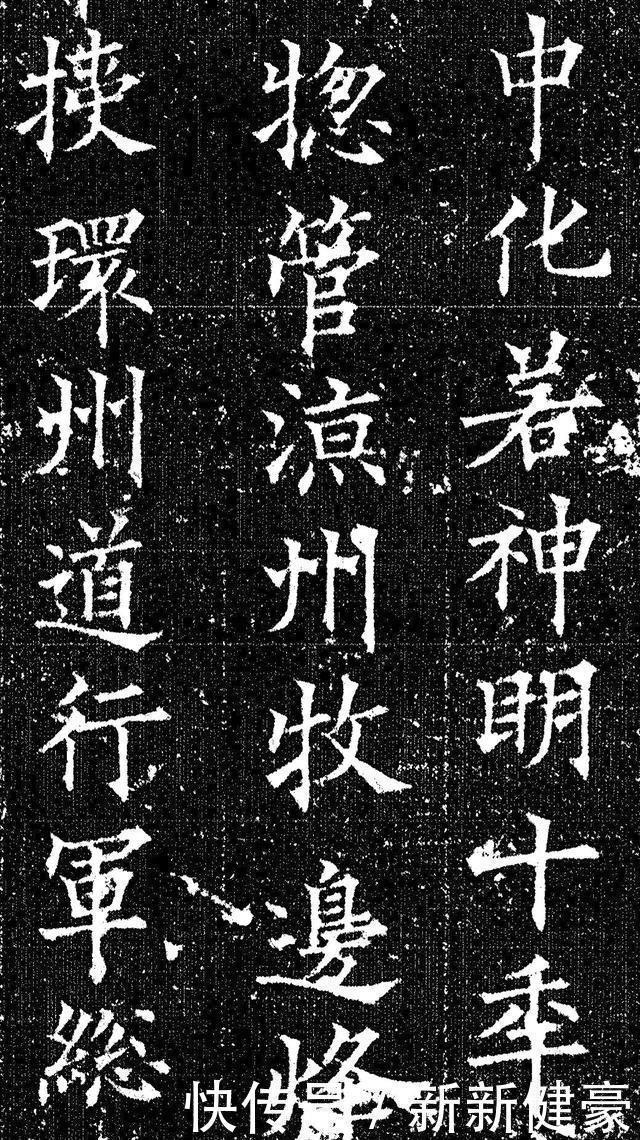 中化若神明十年
揔管涼州牧邊烽
挾環州道行軍総
快传号/新新健豪